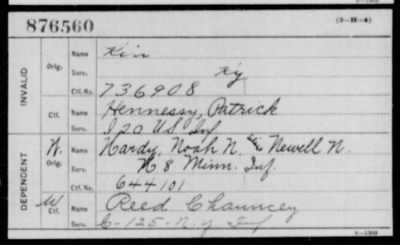 876560
(3-H-4)
INVALID
Orig.
Name Kin
Serv. Ky
Ctf. No. 736908
Ctf.
Name Hennessy, Patrick
Serv. I 20 US Inf
DEPENDENT
W. Orig.
Name Hardy, Noah N. Newell N.
Serv. K 8 Minn. Inf.
Ctf. No. 644101
W Ctf.
Name Reed Chauncey
Serv. C-125-N.Y Inf